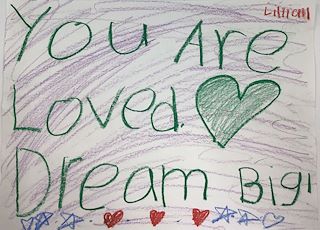 You Are
Loved.
Dream Big!